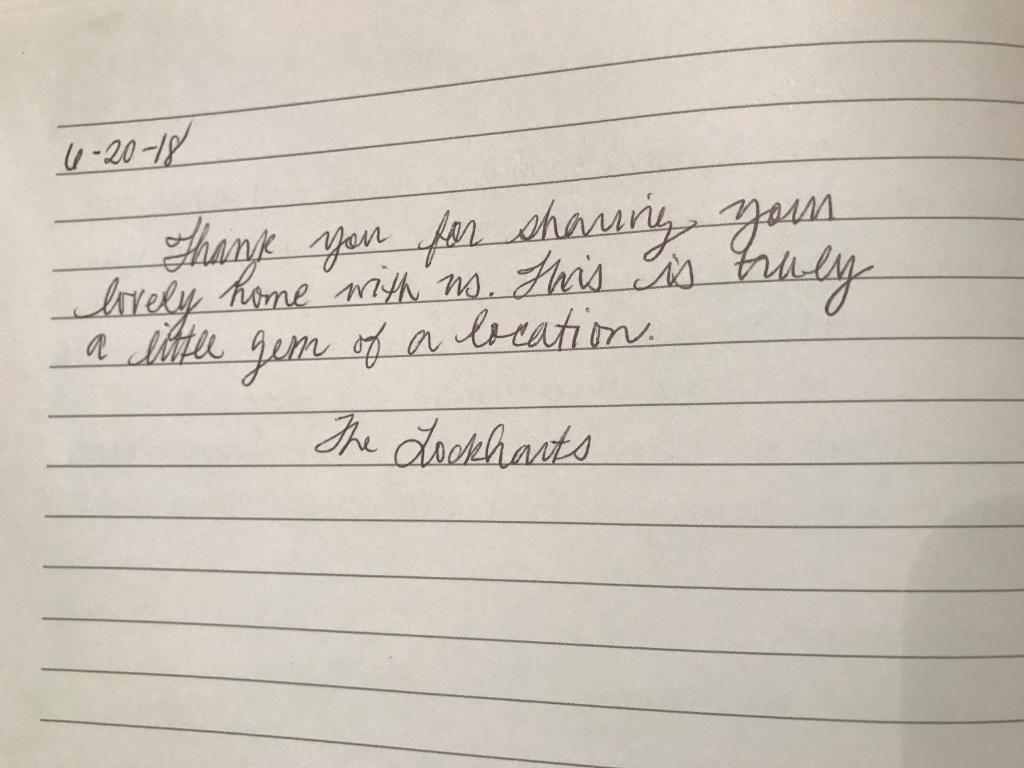 6-20-18
Thank you for sharing your
lovely home with us. This is truly
a little gem of a location.
The Lockharts